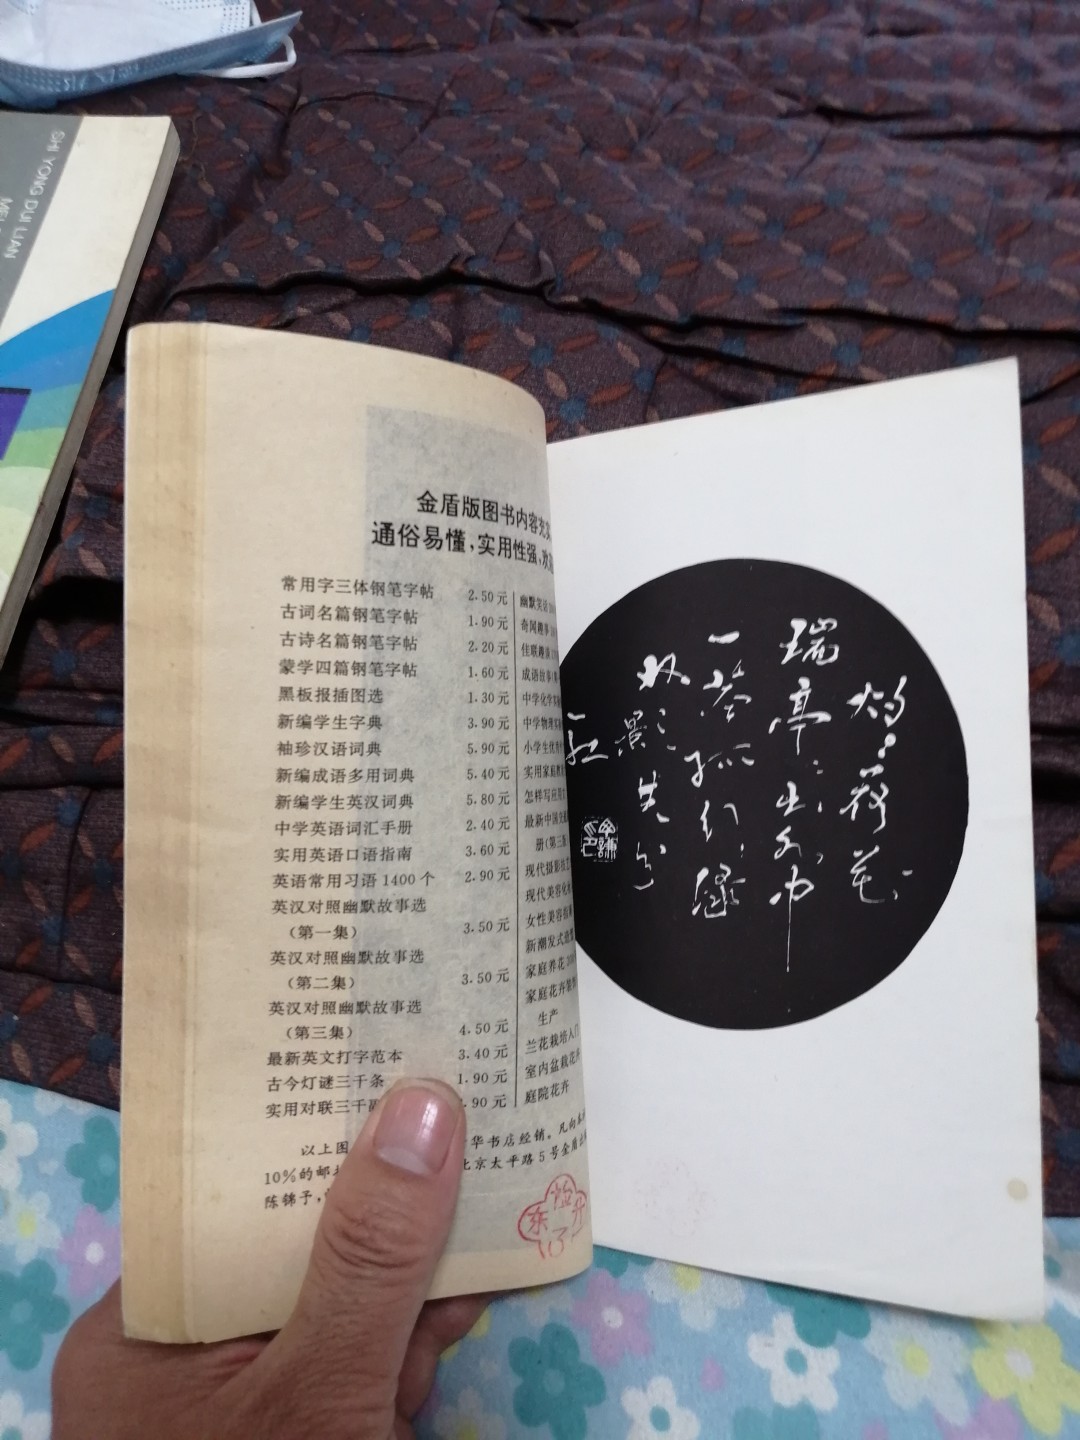 SHI YONG DUI LIAN
金盾版图书内容充实
通俗易懂，实用性强，欢迎
常用字三体钢笔字帖 2.50元
古词名篇钢笔字帖 1.90元
古诗名篇钢笔字帖 2.20元
蒙学四篇钢笔字帖 1.60元
黑板报插图选 1.30元
新编学生字典 3.90元
袖珍汉语词典 5.90元
新编成语多用词典 5.40元
新编学生英汉词典 5.80元
中学英语词汇手册 2.40元
实用英语口语指南 3.60元
英语常用习语1400个 2.90元
英汉对照幽默故事选
（第一集） 3.50元
英汉对照幽默故事选
（第二集） 3.50元
英汉对照幽默故事选
（第三集） 4.50元
最新英文打字范本 3.40元
古今灯谜三千条 1.90元
实用对联三千副 .90元
幽默笑话
奇闻趣事
佳联趣谈
成语故事
中学化学
中学物理
小学生优秀
实用家庭
怎样写应用文
最新中国交通
册（第三
现代摄影技
现代美容化
女性美容
新潮发式
家庭养花300
家庭花卉装
生产
兰花栽培入门
室内盆栽花卉
庭院花卉
以上图 华书店经销。凡向本
10%的邮 北京太平路5号金盾出
陈锦子，
灼灼荷花
瑞亭亭出水中
一茎孤引绿
双影共分
红